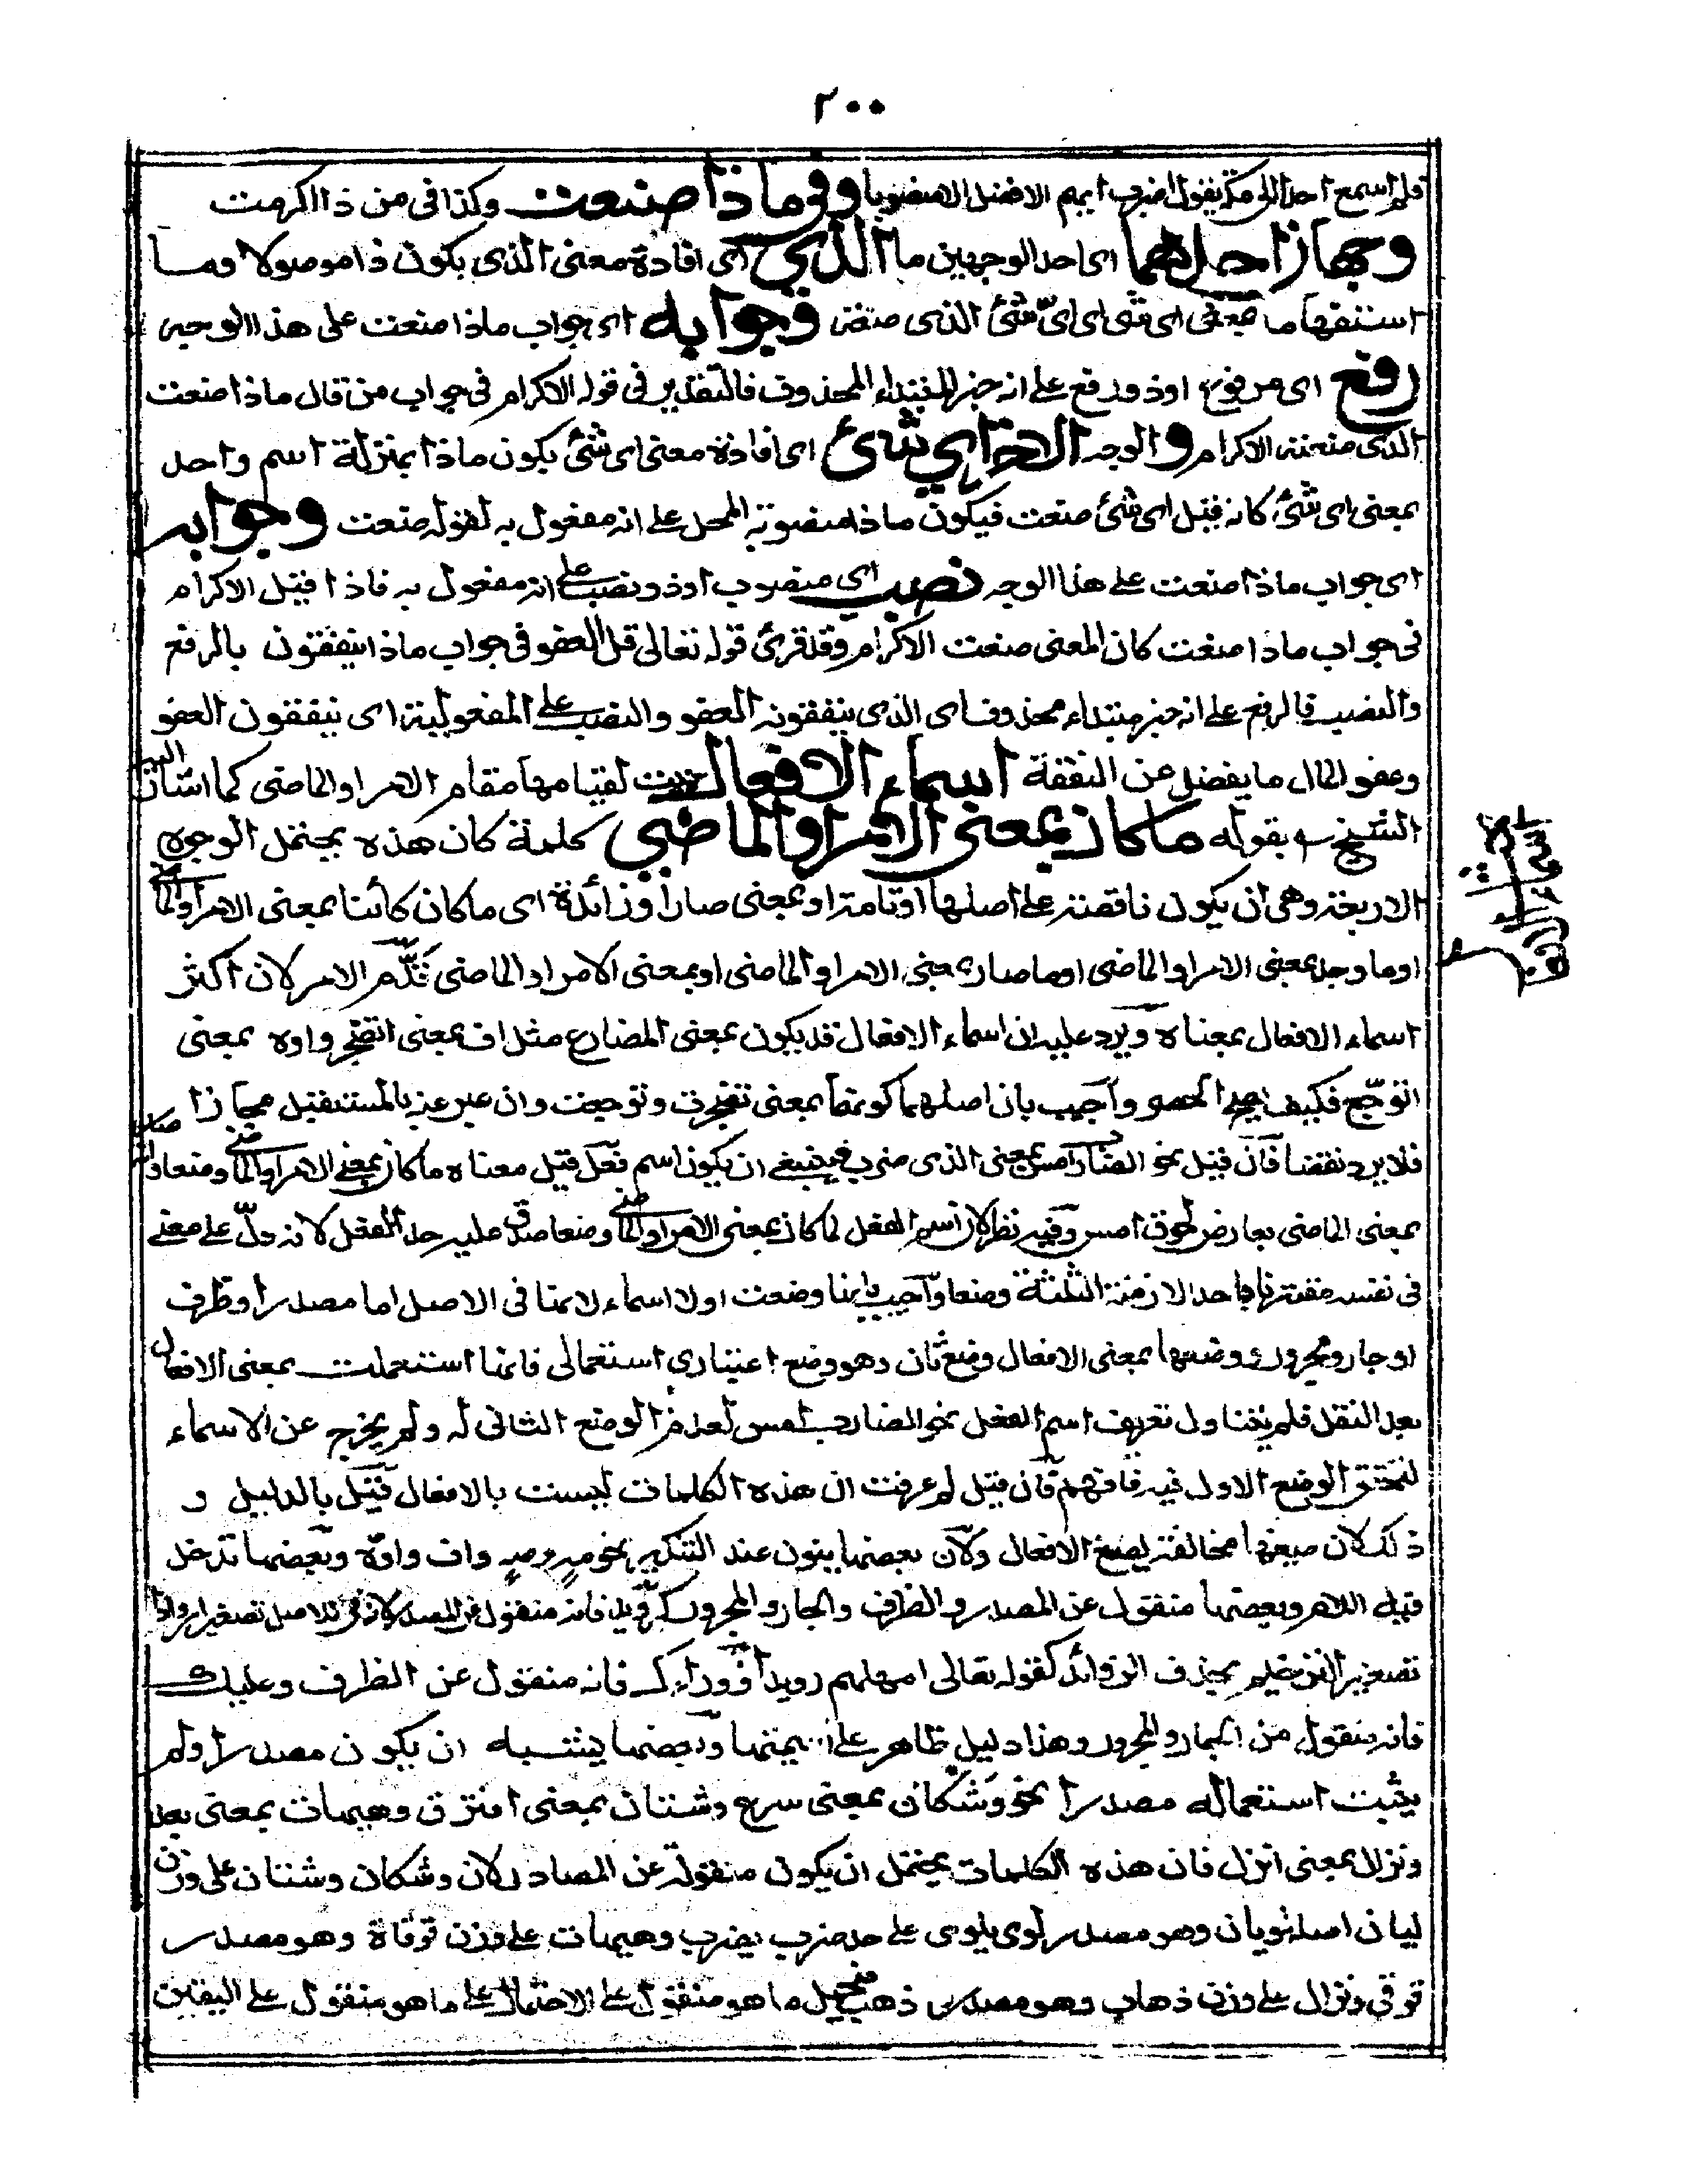 ٢٠٠
فلم اسمع احدا الى مكة يقول اضرب ايهم الافضل الا منصوبا وفى ماذا صنعت وكذا فى من ذا اكرمت
وجهان احدهما اى احد الوجهين ما الذي اى افادة معنى الذى بكون ذا موصولا وما
استفهاما بمعنى اى شئ اى اىّ شئ الذى صنعته فجوابه اى جواب ماذا صنعت على هذا الوجه
رفع اى مرفوع او ذو رفع على انه خبر للمبتداء المحذوف فالتقدير فى قوله الاكرام فى جواب من قال ماذا صنعت
الذى صنعته الاكرام والوجه الاخر اي شئ اى افادة معنى اى شئ بكون ماذا بمنزلة اسم واحد
بمعنى اى شئ كانه قيل اى شئ صنعت فيكون ماذا منصوبة المحل على انه مفعول به لقوله صنعت وجوابه
اى جواب ماذا صنعت على هذا الوجه نصب اى منصوب او ذو نصب على انه مفعول به فاذا قيل الاكرام
فى جواب ماذا صنعت كان المعنى صنعت الاكرام وقد قرئ قوله تعالى قل العفو فى جواب ماذا ينفقون بالرفع
والنصب فالرفع على انه خبر مبتداء محذوف اى الذى ينفقونه العفو والنصب على المفعولية اى ينفقون العفو
وعفو المال ما يفضل عن النفقة اسماء الافعال بنيت لقيامها مقام الامر او الماضى كما اشار اليه
الشيخ بقوله ما كان بمعنى الامر او الماضي كلمة كان هذه يحتمل الوجوه
الاربعة وهى ان يكون ناقصة على اصلها او تامة او بمعنى صار او زائدة اى ما كان كائنا بمعنى الامر او الماضى
او ما وجد بمعنى الامر او الماضى او ما صار بمعنى الامر او الماضى او بمعنى الامر او الماضى قدّم الامر لان اكثر
اسماء الافعال بمعناه ويرد عليه ان اسماء الافعال قد يكون بمعنى المضارع مثل اف بمعنى اتضجر واوه بمعنى
اتوجّع فكيف يصح الحصر واجيب بان اصلهما كونهما بمعنى تضجرت وتوجعت وان عبر عنه بالمستقبل مجازا
فلا يرد نقضا فان قيل نحو الضارب امس بمعنى الذى ضرب فينبغى ان يكون اسم فعل قيل معناه ما كان بمعنى الامر او الماضى وضعا والضارب
بمعنى الماضى بعارض لحوق امس وفيه نظر لان اسم الفعل لما كان بمعنى الامر او الماضى وضعا صدق عليه حد الفعل لانه دلّ على معنى
فى نفسه مقترنا باحد الازمنة الثلثة وضعا واجيب بانها وضعت اولا اسماء لانها فى الاصل اما مصدر او ظرف
او جار ومجرور ووضعها بمعنى الافعال وضع ثان وهو وضع اعتبارى استعمالى فانها استعملت بمعنى الافعال
بعد النقل فلم يتناول تعريف اسم الفعل نحو الضارب امس لعدم الوضع الثانى له ولم يخرج عن الاسماء
لتحقق الوضع الاول فيه فافهم فان قيل لم عرفت ان هذه الكلمات ليست بالافعال قيل بالدليل و
ذلك لان صيغها مخالفة لصيغ الافعال ولان بعضها ينون عند التنكير نحو مهٍ وصهٍ واف واوّه وبعضها تدخل
فيه اللام وبعضها منقول عن المصدر والظرف والجار والمجرور كرويد فانه منقول عن المصدر لانه فى الاصل تصغير ارواد
تصغير الترخيم بحذف الزوائد كقوله تعالى امهلهم رويدا ووراءك فانه منقول عن الظرف وعليك
فانه منقول من الجار والمجرور وهذا دليل ظاهر على اسميتها وبعضها يشبه ان يكون مصدرا ولم
يثبت استعماله مصدرا نحو وشكان بمعنى سرع وشتان بمعنى افترق وهيهات بمعنى بعد
ونزال بمعنى انزل فان هذه الكلمات يحتمل ان يكون منقولة عن المصادر لان وشكان وشتان على وزن
ليان اصله لويان وهو مصدر لوى يلوى على حد ضرب يضرب وهيهات على وزن قوقاة وهو مصدر
قوقى ونزال على وزن ذهاب وهو مصدر ذهب فحمل ما هو منقول على الاحتمال على ما هو منقول على اليقين